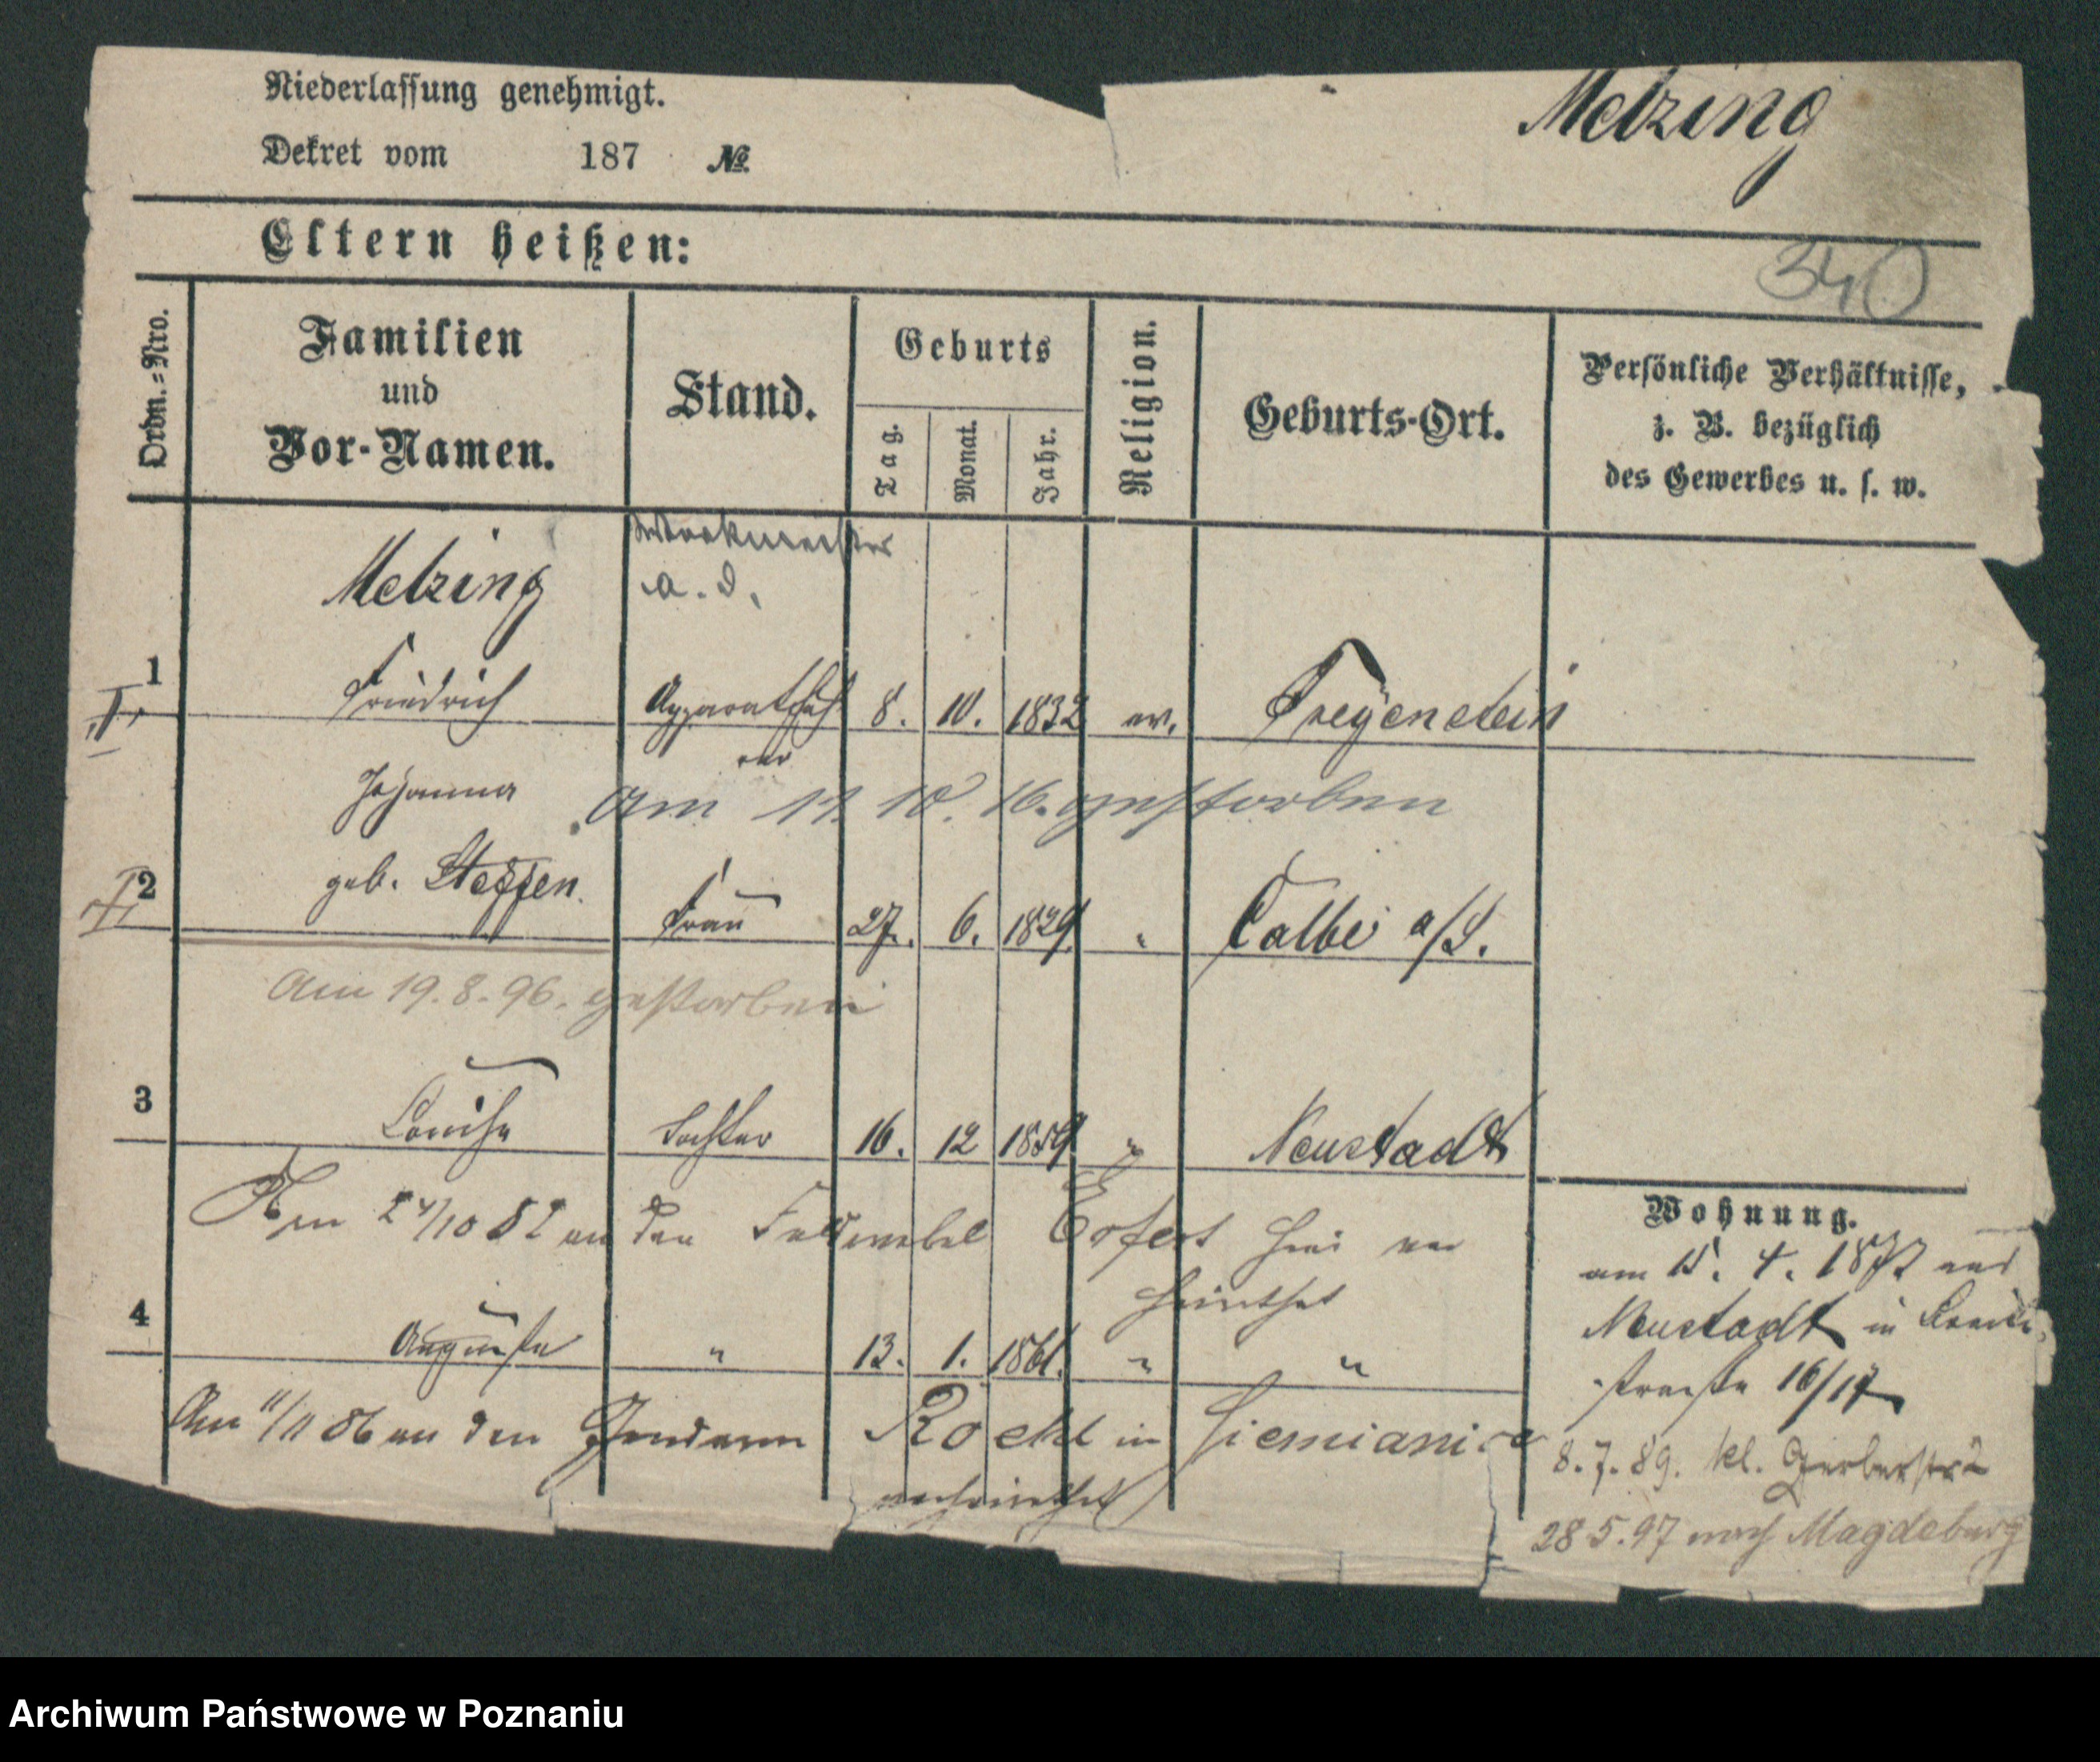 Niederlassung genehmigt.
Dekret vom 187 №
Metzing
Eltern heißen:
340
Ordn.=Nro.
Familien
und
Vor-Namen.
Stand.
Geburts
Tag.
Monat.
Jahr.
Religion.
Geburts-Ort.
Persönliche Verhältnisse,
z. B. bezüglich
des Gewerbes u. s. w.
Werkmeister
a. D.
Metzing
1 Friedrich 8. 10. 1832 ev. Freyenstein
Johanna
am 11. 10. 16. gestorben
2 geb. Steffen. Frau 27. 6. 1829 " Calbe a/S.
Am 19. 8. 96. gestorben
3 Louise Tochter 16. 12 1859 " Neustadt
Am 24/10 82 an den Feldwebel Erfert
4 Auguste " 13. 1. 1861. " "
Am 11/11 86 an den Gendarm in Siemianice
verheirathet
Wohnung.
am 15. 4. 1872 aus
Neustadt in
straße 16/17
8. 7. 89. kl. Gerberstr 2
28 5. 97 nach Magdeburg
Archiwum Państwowe w Poznaniu